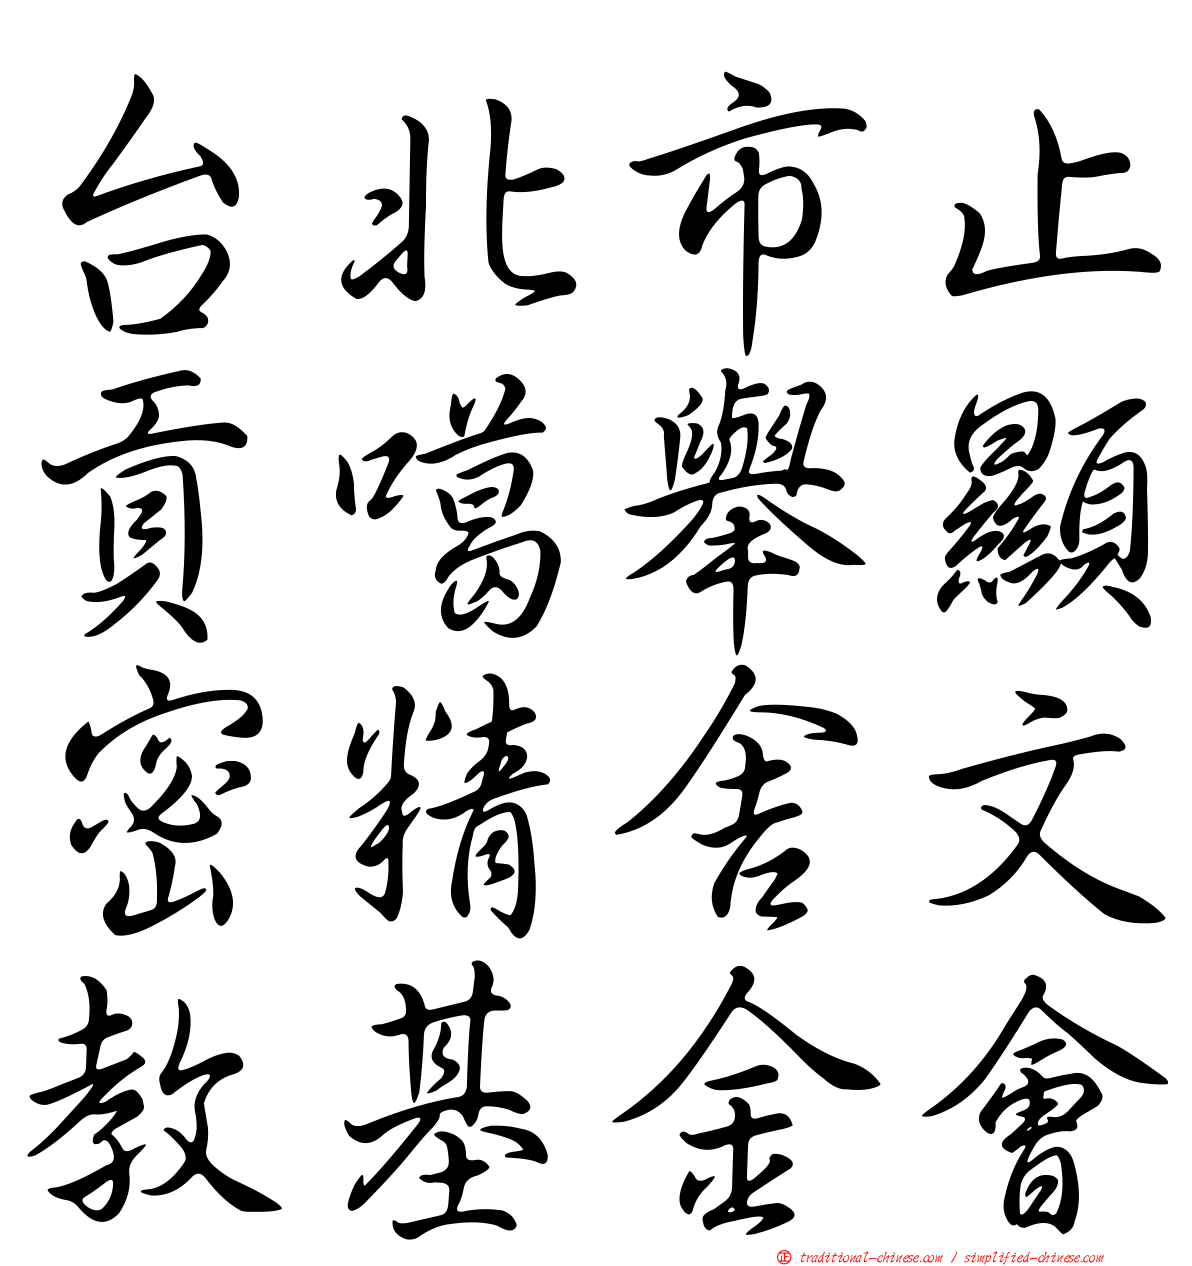 台北市止
貢噶舉顯
密精舍文
教基金會
正 traditional-chinese.com / simplified-chinese.com